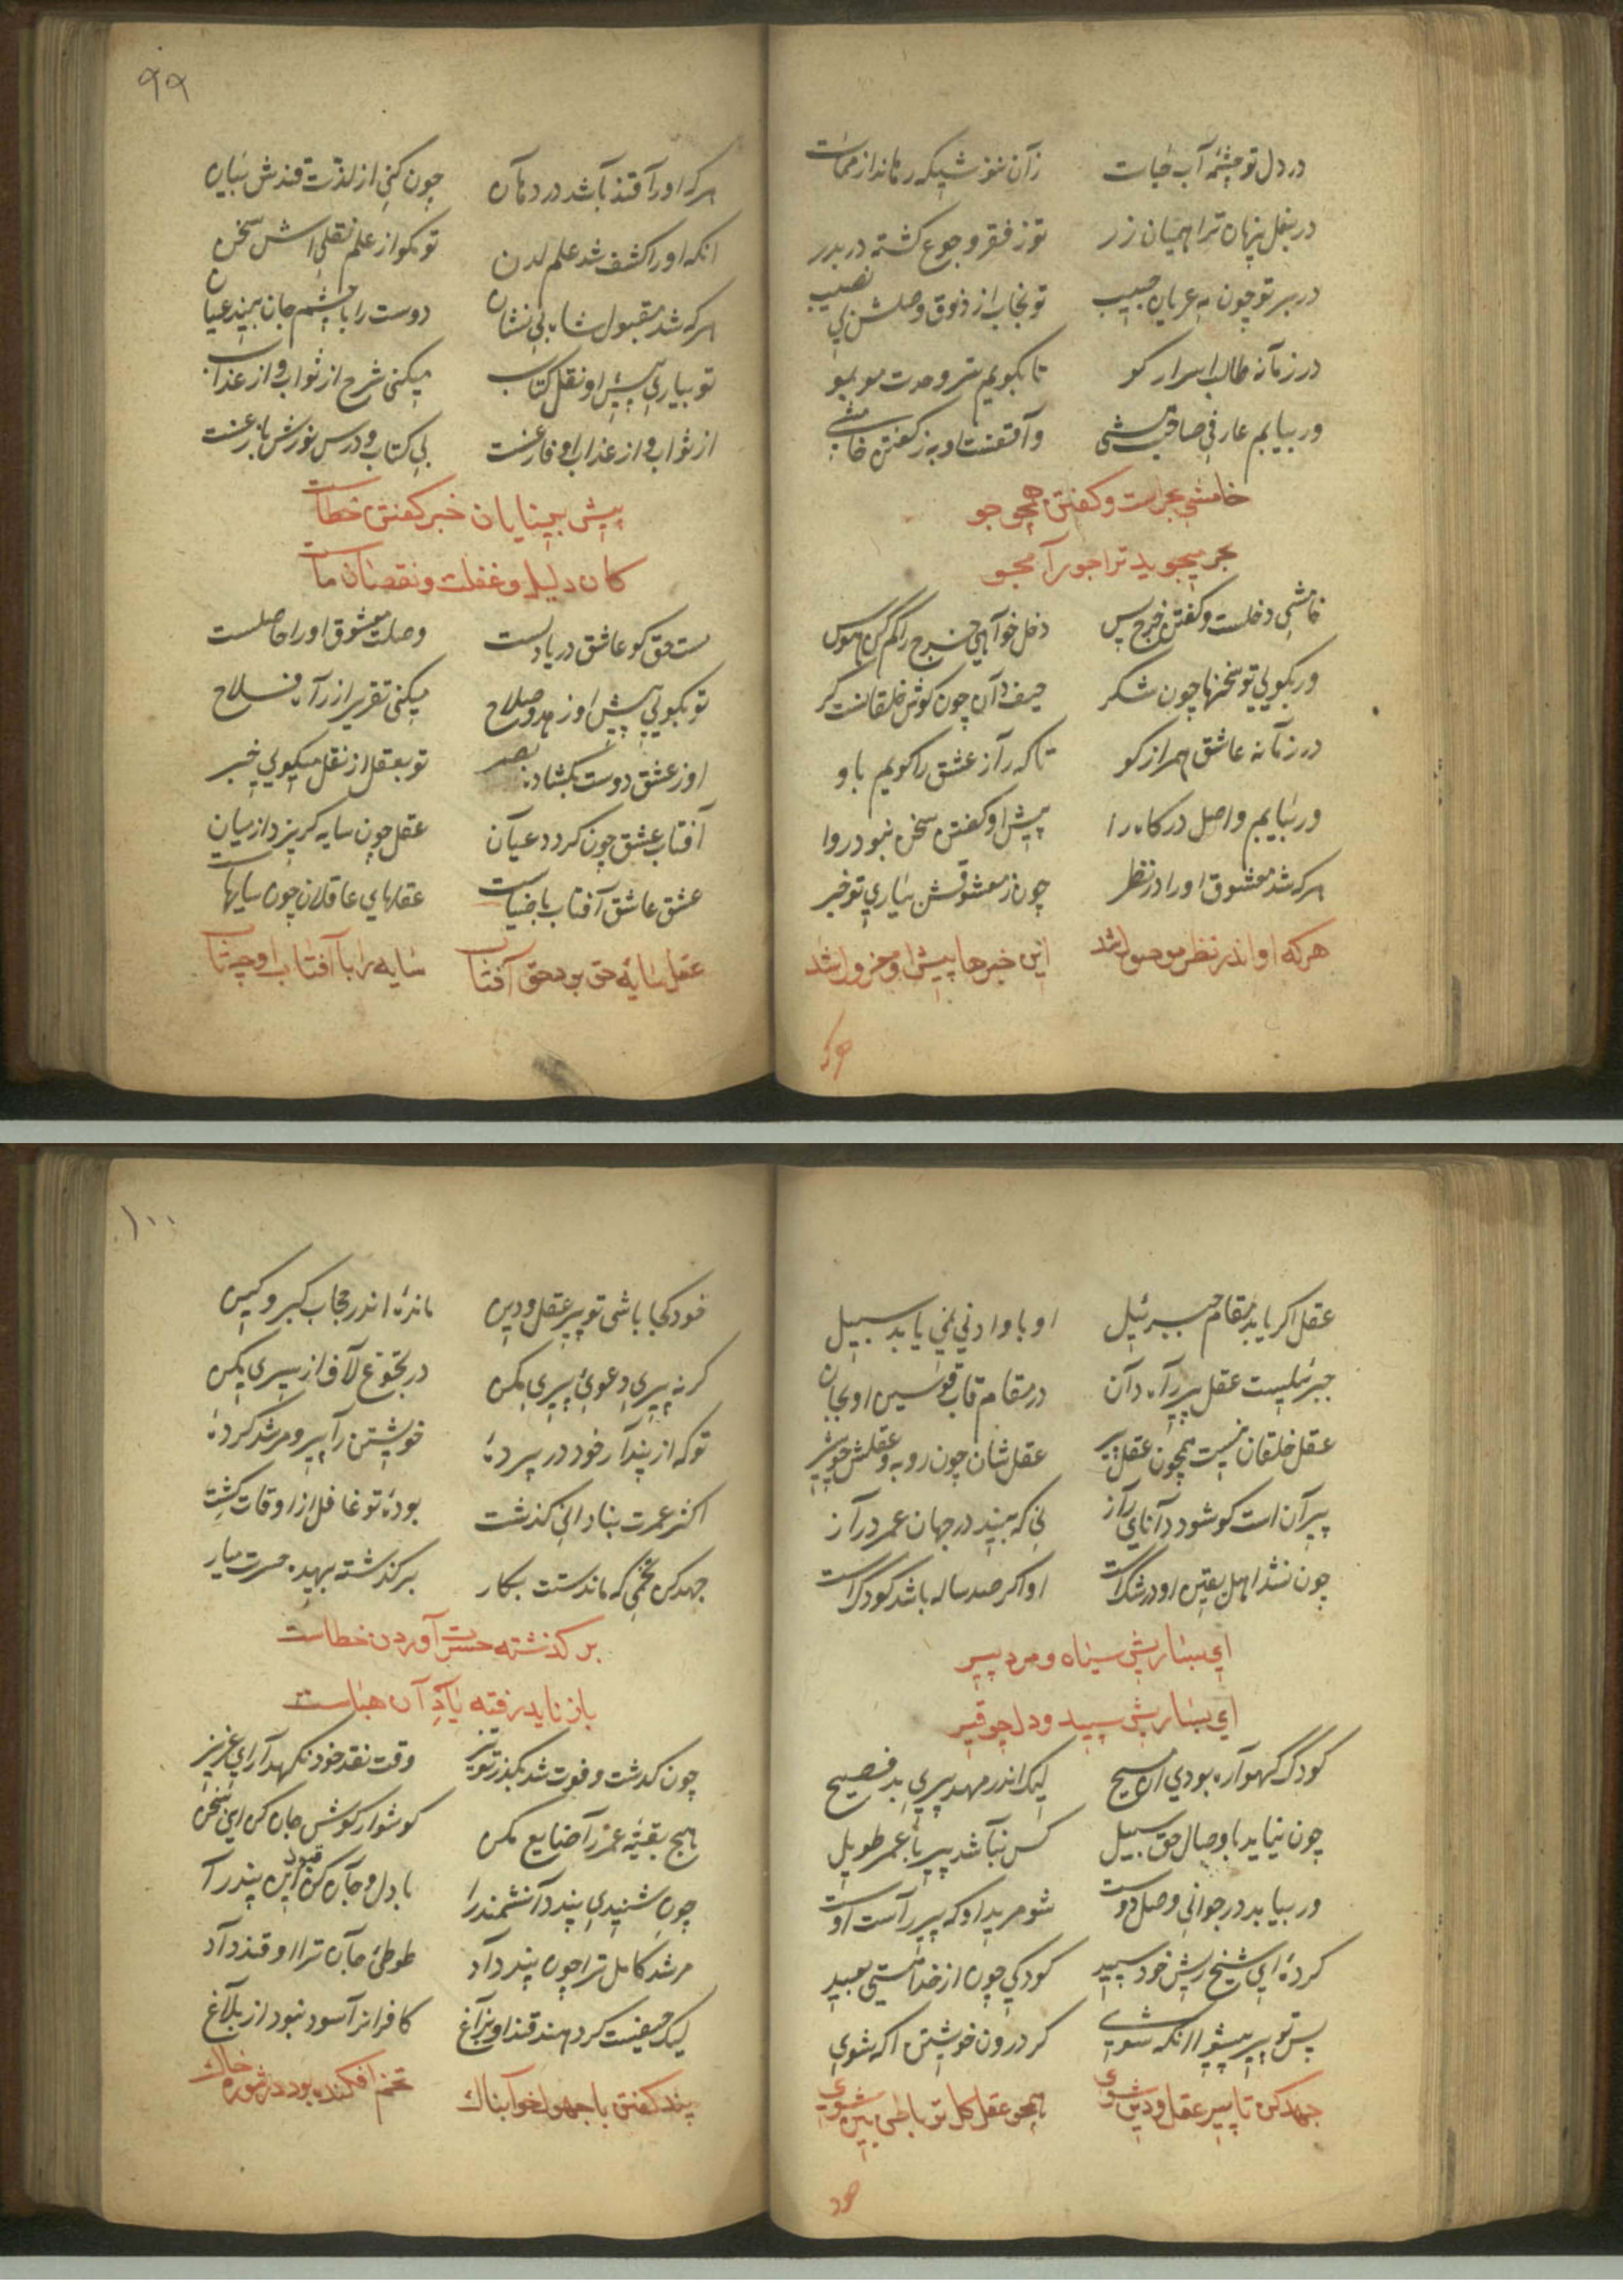 در دل تو چشمهٔ آب حیات زآن ننوشیکه رهاند از ممات
در بغل پنهان ترا همیان زر تو ز فقر و جوع کشته در بدر
در بر تو چون مه عریان حبیب تو بخاب از ذوق وصلش بی نصیب
در زمانه طالب اسرار کو تا بکویم سر وحدت مو بمو
ور بیابم عارفی صاحب واقفست او به ز کفتن خامشی
خامشی بحرست و کفتن همچو جو
بحر میجوید ترا جو را مجو
خامشی دخلست و کفتن خرج پس دخل خواهی خرج را کم کن هوس
ور بکویی تو سخنها چون شکر حیف دان چون کوش خلقانست کر
در زمانه عاشق همراز کو تا که راز عشق را کویم با و
ور بیابم واصل درکاه را پیش او کفتن سخن نبود روا
هر که شد معشوق او را در نظر چون ز معشوقش بیاری تو خبر
هرکه او اندر نظر موصول شد این خبرها پیش او معزول شد
هرک
۹۹
هر که او را قند باشد در دهان چون کنی از لذت قندش بیان
انکه او را کشف شد علم لدن تو مکو از علم نقلی اش سخن
هر که شد مقبول شاه بی نشان دوست را با چشم جان بیند عیان
تو بیاری پیش او نقل کتاب میکنی شرح از ثواب و از عذاب
از ثواب و از عذاب او فارغست بی کتاب و درس نورش بازغست
پیش بینایان خبر کفتن خطاست
کان دلیل و غفلت و نقصان ماست
مست حق کو عاشق دریادلست وصلت معشوق او را حاصلست
تو بکویی پیش او زهد و صلاح میکنی تقریر از راه فلاح
او ز عشق دوست بکشاده بصر تو بعقل از نقل میکویی خبر
آفتاب عشق چون کردد عیان عقل چون سایه کریزد از میان
عشق عاشق آفتاب با ضیاست عقلهای عاقلان چون سایهاست
عقل سایهٔ حق بود حق آفتاب سایه را با آفتاب او چه تاب
عقل اکر یابد مقام جبرئیل او با و ادنی نمی یابد سبیل
جبرئیلست عقل پیر راه دان در مقام قاب قوسین او بجان
عقل خلقان نیست همچون عقل پیر عقل شان چون روبه و عقلش چو شیر
پیر آن است کو شود دانای راز نی که بیند در جهان عمر دراز
چون نشد اهل یقین او در شکست او اکر صد ساله باشد کودکست
ای بسا ریش سیاه و مرد پیر
ای بسا ریش سپید و دل چو قیر
کودک کهواره بودی ان مسیح لیک اندر مهد پیری بد فصیح
چون نیابد با وصال حق سبیل کس نباشد پیر با عمر طویل
ور بیابد در جوانی وصل دوست شو مرید او که پیر راست اوست
کردهٔ ای شیخ ریش خود سپید کودکی چون از خدا هستی بعید
پس تو پیر پیشوا انکه شوی کز درون خویشتن اکه شوی
جهد کن تا پیر عقل و دین شوی همچو عقل کل تو باطن بین شوی
خود
۱۰۰
خود کجا باشی تو پیر عقل و دین ماندهٔ اندر حجاب کبر و کین
کر نه پیری دعوی پیری مکن در بحقوع لاف از پیری مکن
تو که از پندار خود در پردهٔ خویشتن را پیر و مرشد کردهٔ
اکثر عمرت بنادانی کذشت بودهٔ تو غافل از اوقات کشت
جهد کن تخمی که ماندستت بکار بر کذشته بیهده حسرت میار
بر کذشته حسرت آوردن خطاست
باز ناید رفته یاد آن هباست
چون کذشت و فوت شد بکذر تو نیز وقت نقد خود نکهدار ای عزیز
هیچ بقیهٔ عمر را ضایع مکن کوشوار کوش جان کن ای سخن
چون شنیدی پند دانشمند را با دل و جان کن قبول این پند را
مرشد کامل ترا چون پند داد طوطی جان ترا او قند داد
لیک حیفست کر دهند قند او بزاغ کافرانرا سود نبود از بلاغ
پند کفتن با جهول خوابناک تخم افکندن بود در شوره خاک